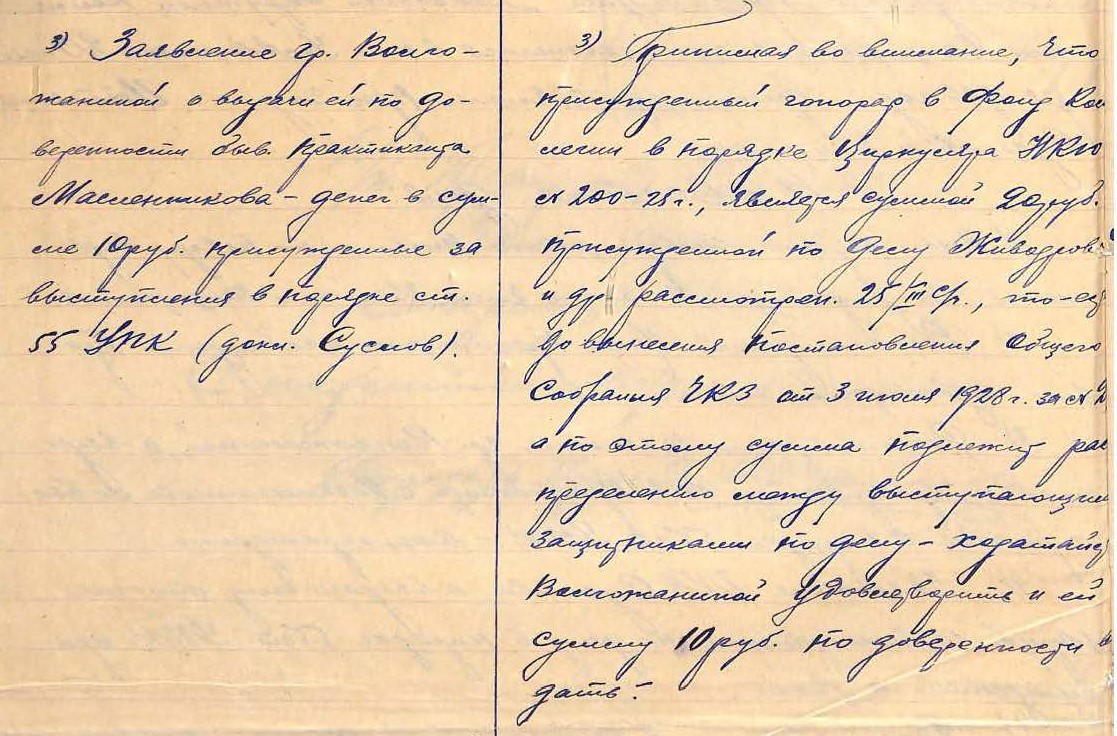 3) Заявление гр. Волго-
жаниной о выдачи ей по до-
веренности быв. практиканта
Масленникова - денег в сум-
ме 10 руб. присужденные за
выступления в порядке ст.
55 УПК (докл. Суслов).
3) Принимая во внимание, что
присужденный гонорар в Фонд Кол
легии в порядке Циркуляра НКЮ
№ 200-25 г., является суммой 20 руб.
присужденной по делу Живодров
и др. рассмотрен. 25/III с/г., то-ес
до вынесения постановления Общего
Собрания ЧКЗ от 3 июня 1928 г. за №
а по этому сумма подлежит рас
пределению между выступающим
защитниками по делу - ходатайс
Волгожаниной удовлетворить и ей
сумму 10 руб. по доверенности в
дать.